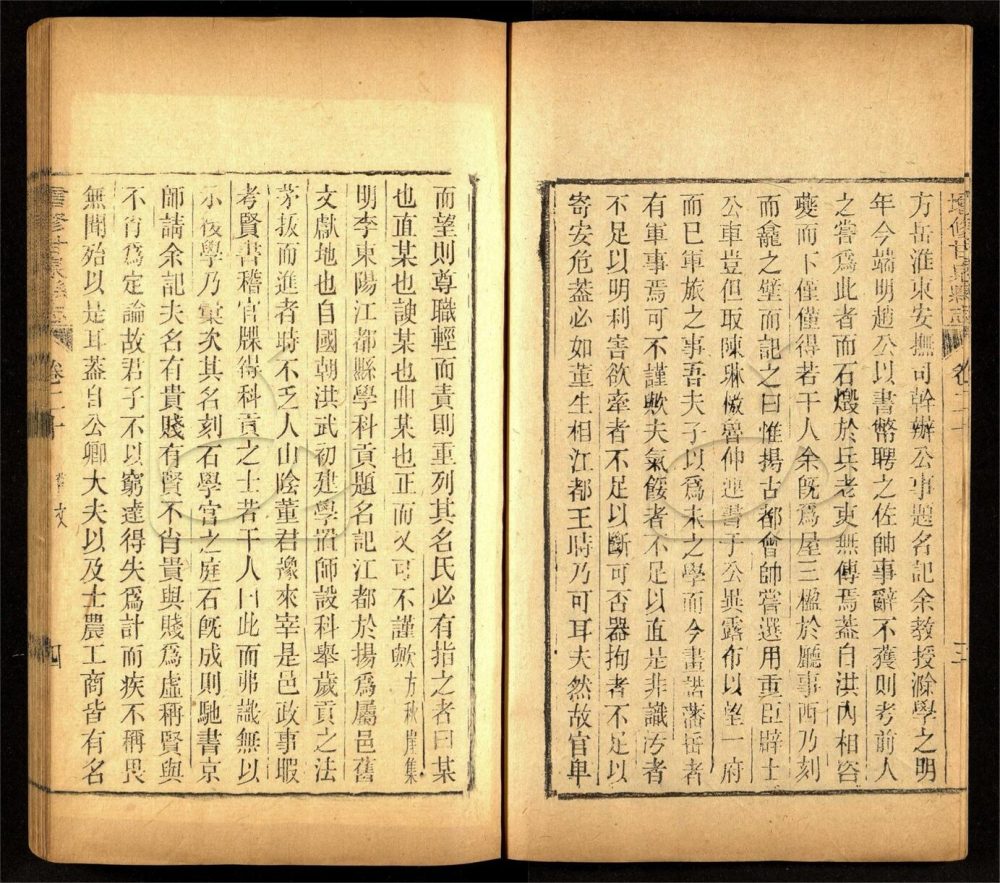 增修甘泉縣志 卷二十 三
方岳淮東安撫司幹辦公事題名記余教授滁學之明
年今端明趙公以書幣聘之佐帥事辭不獲則考前人
之嘗爲此者而石燬於兵老吏無傳焉蓋自洪內相咨
夔而下僅僅得若干人余旣爲屋三楹於廳事西乃刻
而龕之壁而記之曰惟揚古都會帥嘗選用重臣辟士
公車豈但取陳琳檄魯仲連書于公異露布以望一府
而已軍旅之事吾夫子以爲未之學而今畫諾藩岳者
有軍事焉可不謹歟夫氣餒者不足以直是非識汚者
不足以明利害欲牽者不足以斷可否器拘者不足以
寄安危蓋必如董生相江都王時乃可耳夫然故官卑
而望則尊職輕而責則重列其名氏必有指之者曰某
也直某也諛某也曲某也正而又可不謹歟方秋崖集
明李東陽江都縣學科貢題名記江都於揚爲屬邑舊
文獻地也自國朝洪武初建學置師設科舉歲貢之法
茅拔而進者時不乏人山陰董君豫來宰是邑政事暇
考賢書稽官牒得科貢之士若干人曰此而弗識無以
示後學乃彙次其名刻石學宮之庭石旣成則馳書京
師請余記夫名有貴賤有賢不肖貴與賤爲虛稱賢與
不肖爲定論故君子不以窮達得失爲計而疾不稱畏
無聞殆以是耳蓋自公卿大夫以及士農工商皆有名
增修甘泉縣志 卷二十 四